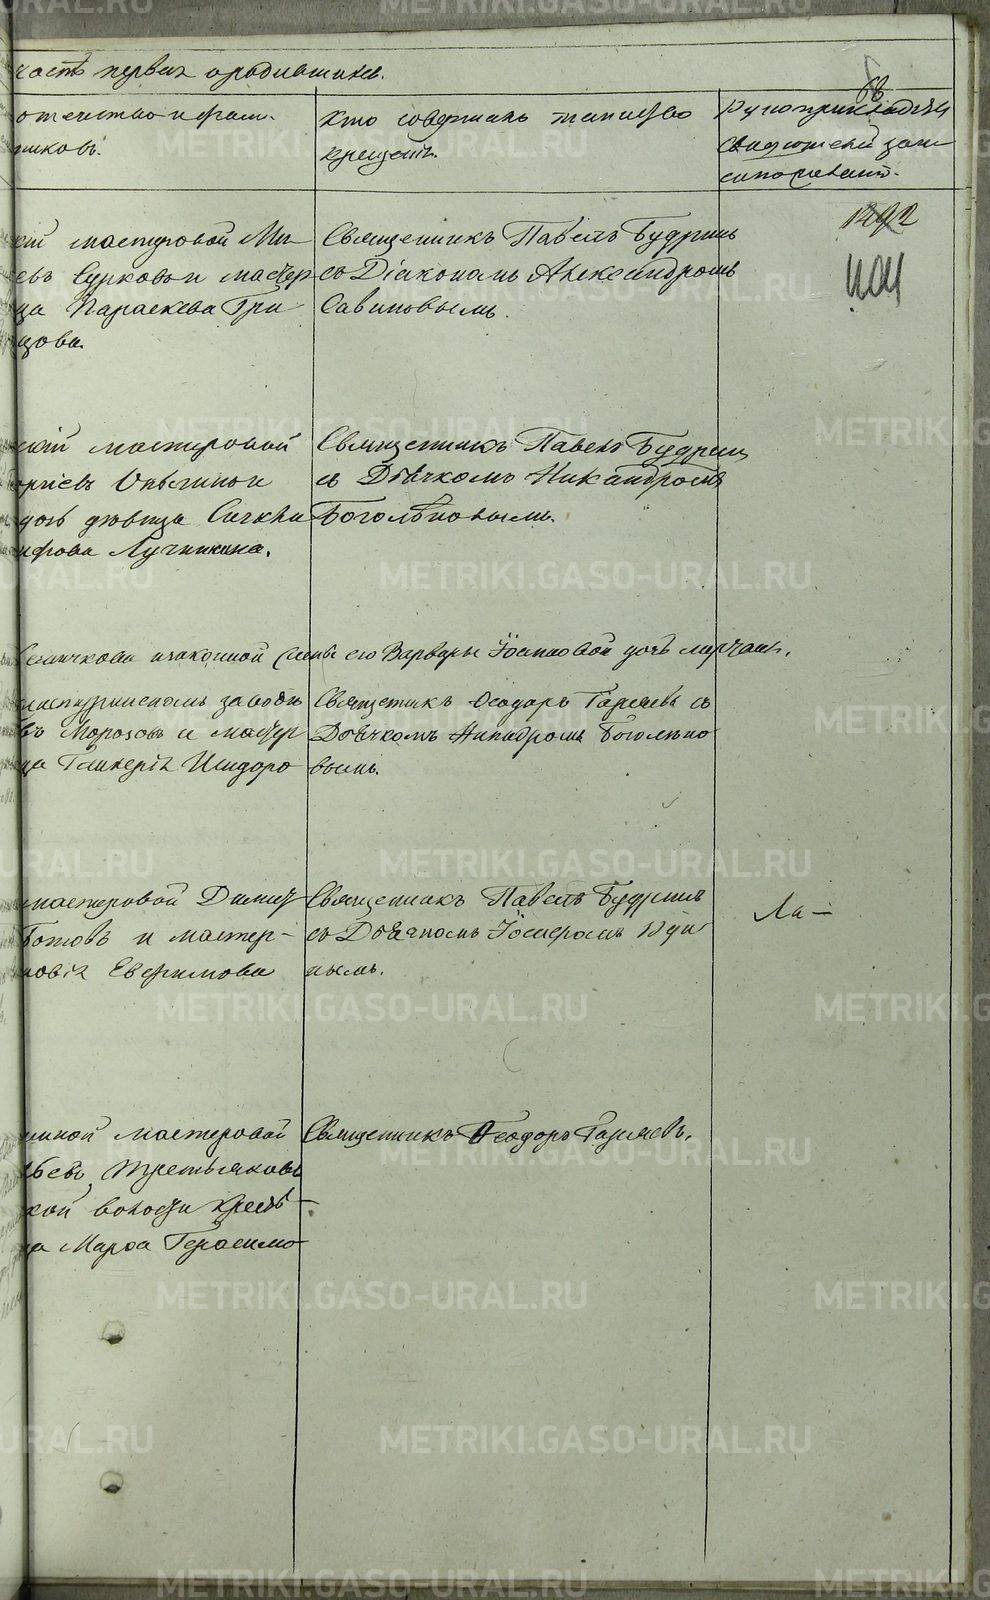 часть первая о родившихся.
68
отечество и фам-
никовъ.
Кто совершалъ таинство
крещенія.
Рукоприкладства
свидѣтелей записи
по желанію.
1492
кій мастеровой Ми
евъ Сурковъ и мастер
ца Параскева Гри
цова.
Священникъ Павелъ Будринъ
съ Діакономъ Александромъ
Савиновымъ.
скій мастеровой
оргіевъ
дочь дѣвица
Лучинкина.
Священникъ Павелъ Будринъ
съ Дьячкомъ Никандромъ
Боголѣповымъ.
и законной жены его Варвары Іоанновой дочь
заводѣ
въ Морозовъ и мастер
ца Гликерія Исидоро
Священникъ Ѳеодоръ Гаряевъ съ
Дьячкомъ Никандромъ Боголѣпо
вымъ.
мастеровой Димит
Ботовъ и мастер-
Евфимова
Священникъ Павелъ Будринъ
съ Дьячкомъ Іосифомъ
нымъ.
Ла-
мастеровой
ьевъ Третьяковъ
кой волости крестья-
ка Марѳа Герасимо
Священникъ Ѳеодоръ Гаряевъ.
METRIKI.GASO-URAL.RU